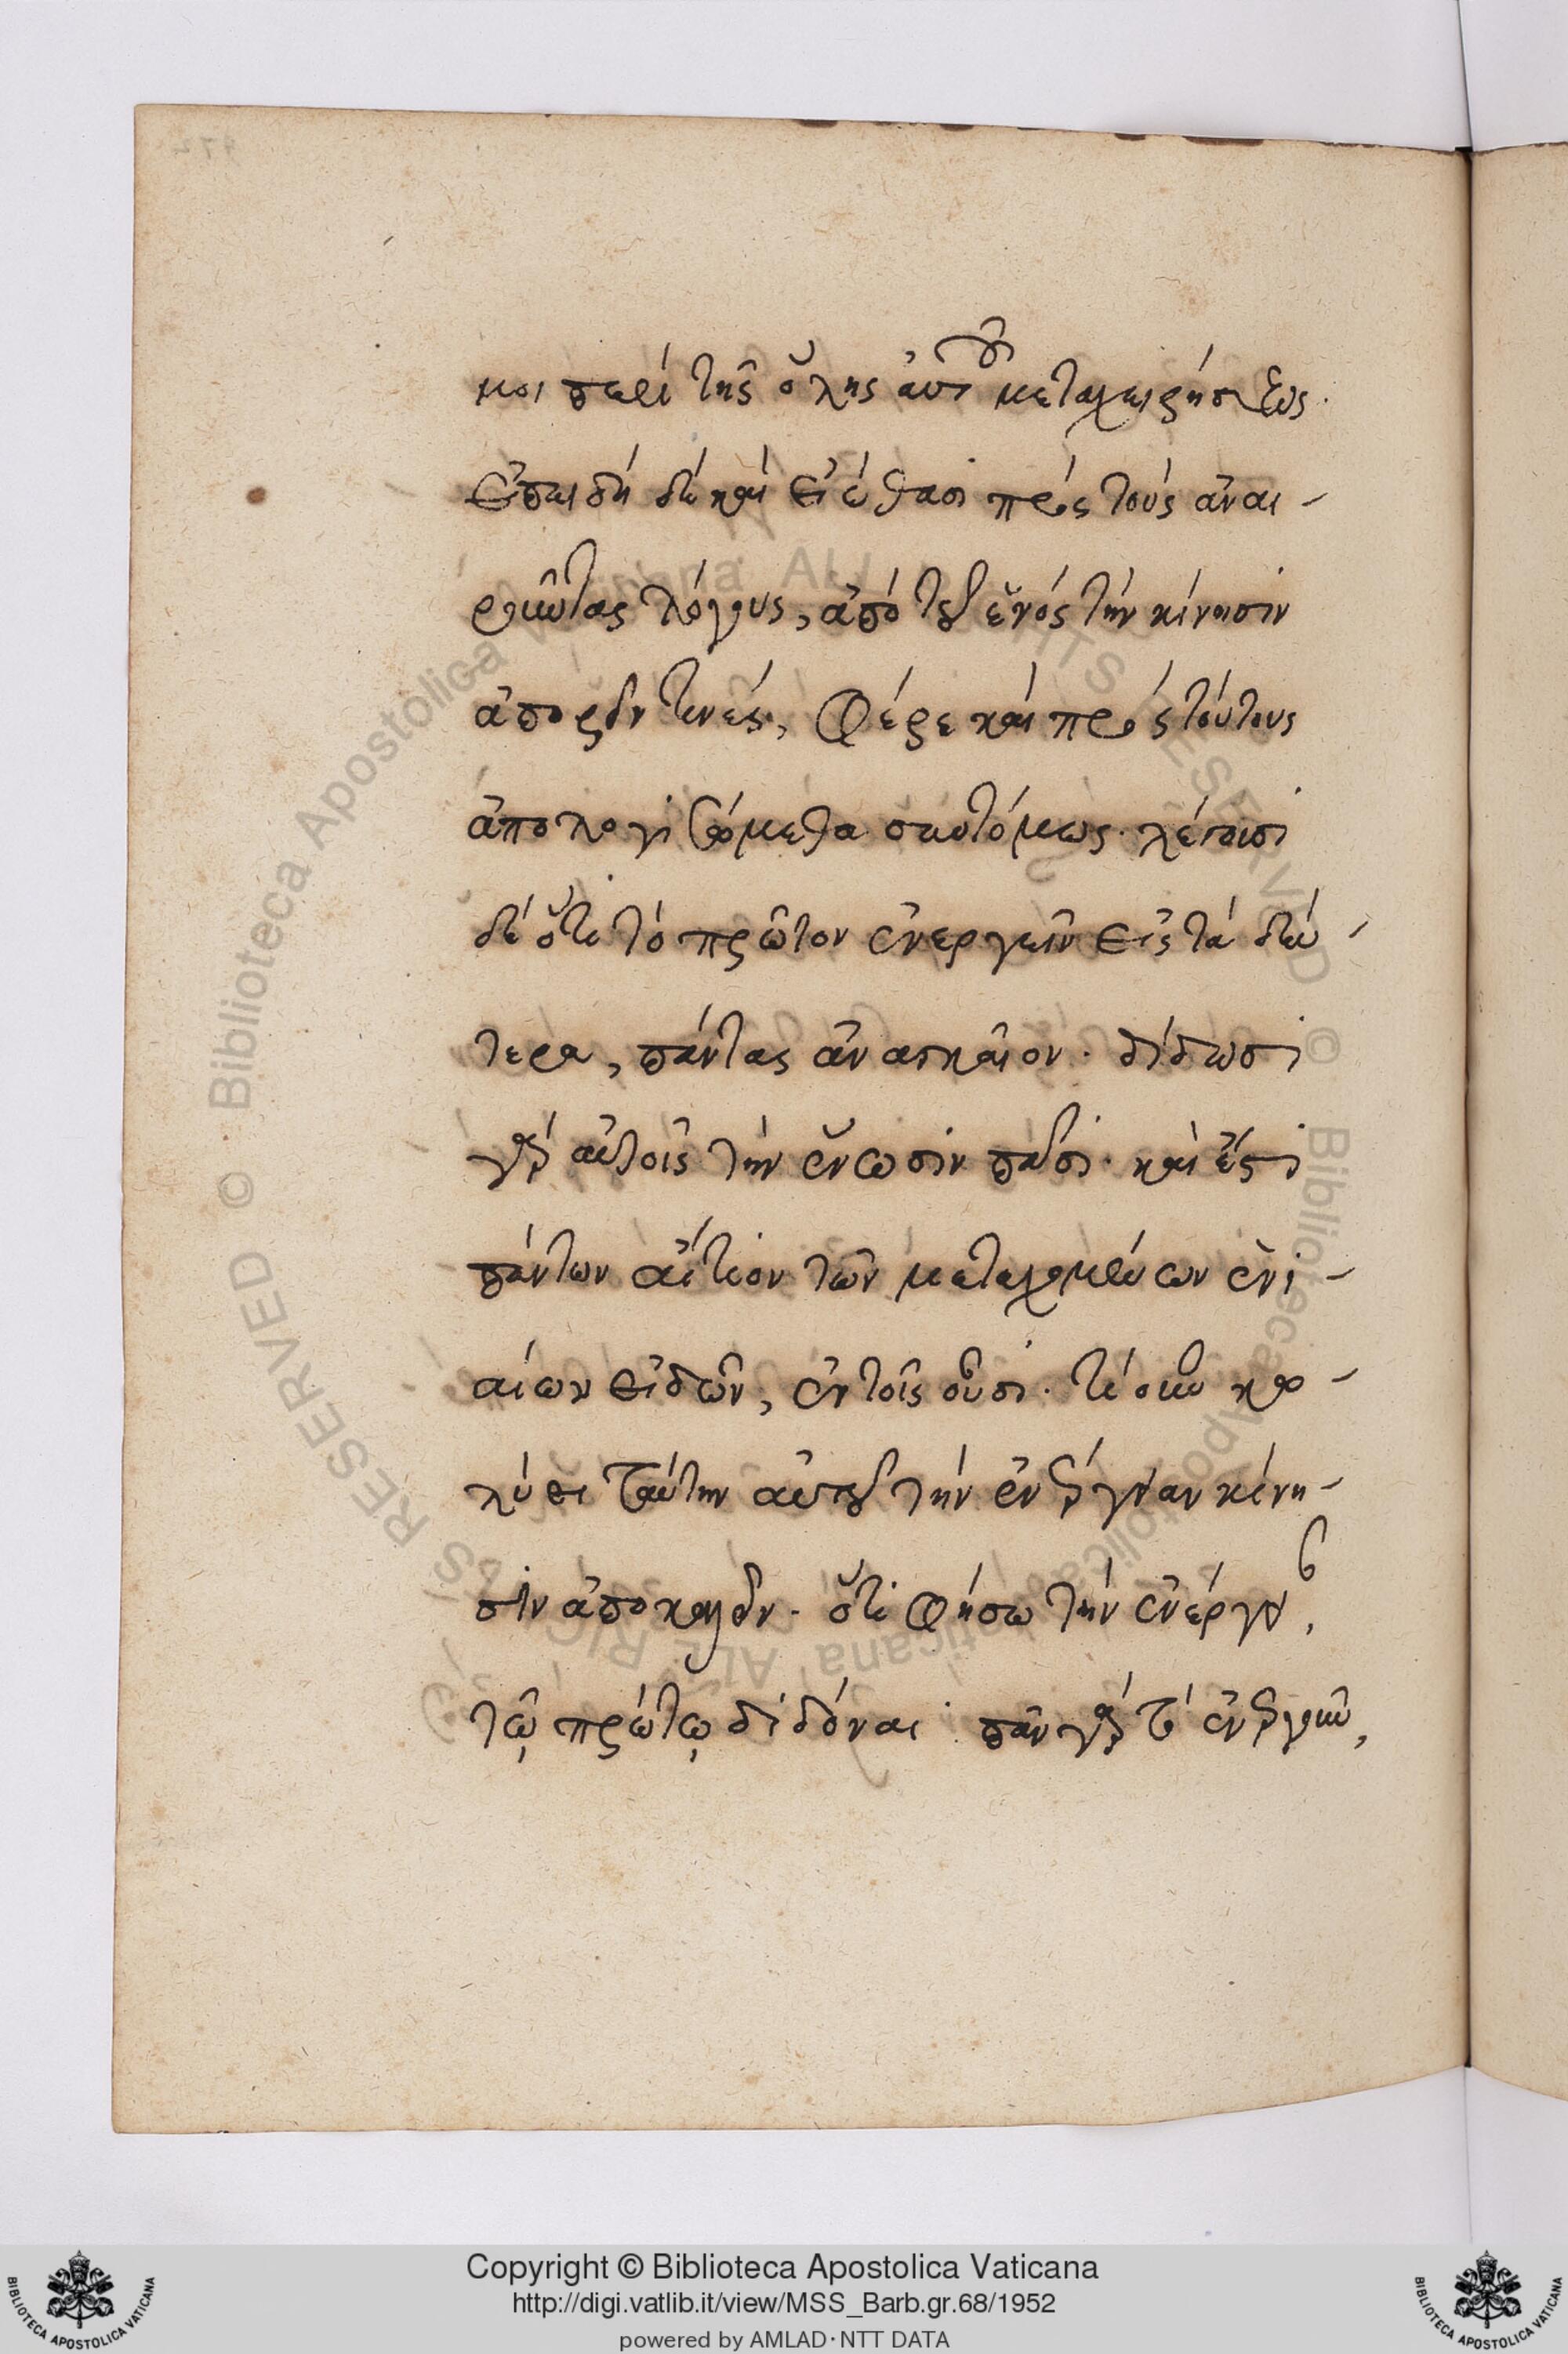 μοι περὶ τῆς ὅλης αὐτοῦ μεταχειρήσεως.
Ἐπειδὴ δὲ καὶ εἰώθασι πρὸς τοὺς ἀναι-
ροῦντας λόγους, ἀπὸ τοῦ ἑνὸς τὴν κίνησιν
ἀπορεῖν τινές, Φέρε καὶ πρὸς τούτους
ἀπολογισώμεθα συντόμως. λέγουσι
δὲ ὅτι τὸ πρῶτον ἐνεργεῖν εἰς τὰ δεύ-
τερα, πάντας ἀναγκαῖον. δίδωσι
γὰρ αὐτοῖς τὴν ἕνωσιν πᾶσι. καὶ ἔστι
πάντων αἴτιον τῶν μετεχομένων ἑνι-
αίων εἰδῶν, ἐν τοῖς οὖσι. τί οὖν κω-
λύει ταύτην αὐτοῦ τὴν ἐνέργειαν κίνη-
σιν ἀποκαλεῖν. ὅτι φήσω τὴν ἐνέργειαν,
τῷ πρώτῳ διδόναι. πᾶν γὰρ τὸ ἐνεργοῦν,
Copyright © Biblioteca Apostolica Vaticana
http://digi.vatlib.it/view/MSS_Barb.gr.68/1952
powered by AMLAD·NTT DATA